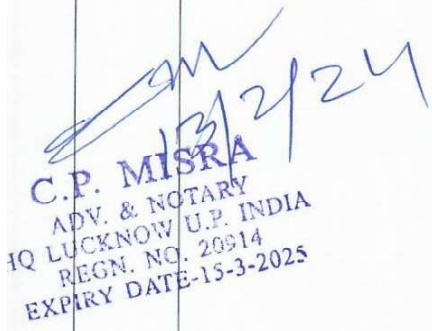 13/2/24
C.P. MISRA
ADV. & NOTARY
HQ LUCKNOW U.P. INDIA
REGN. NO. 20914
EXPIRY DATE-15-3-2025